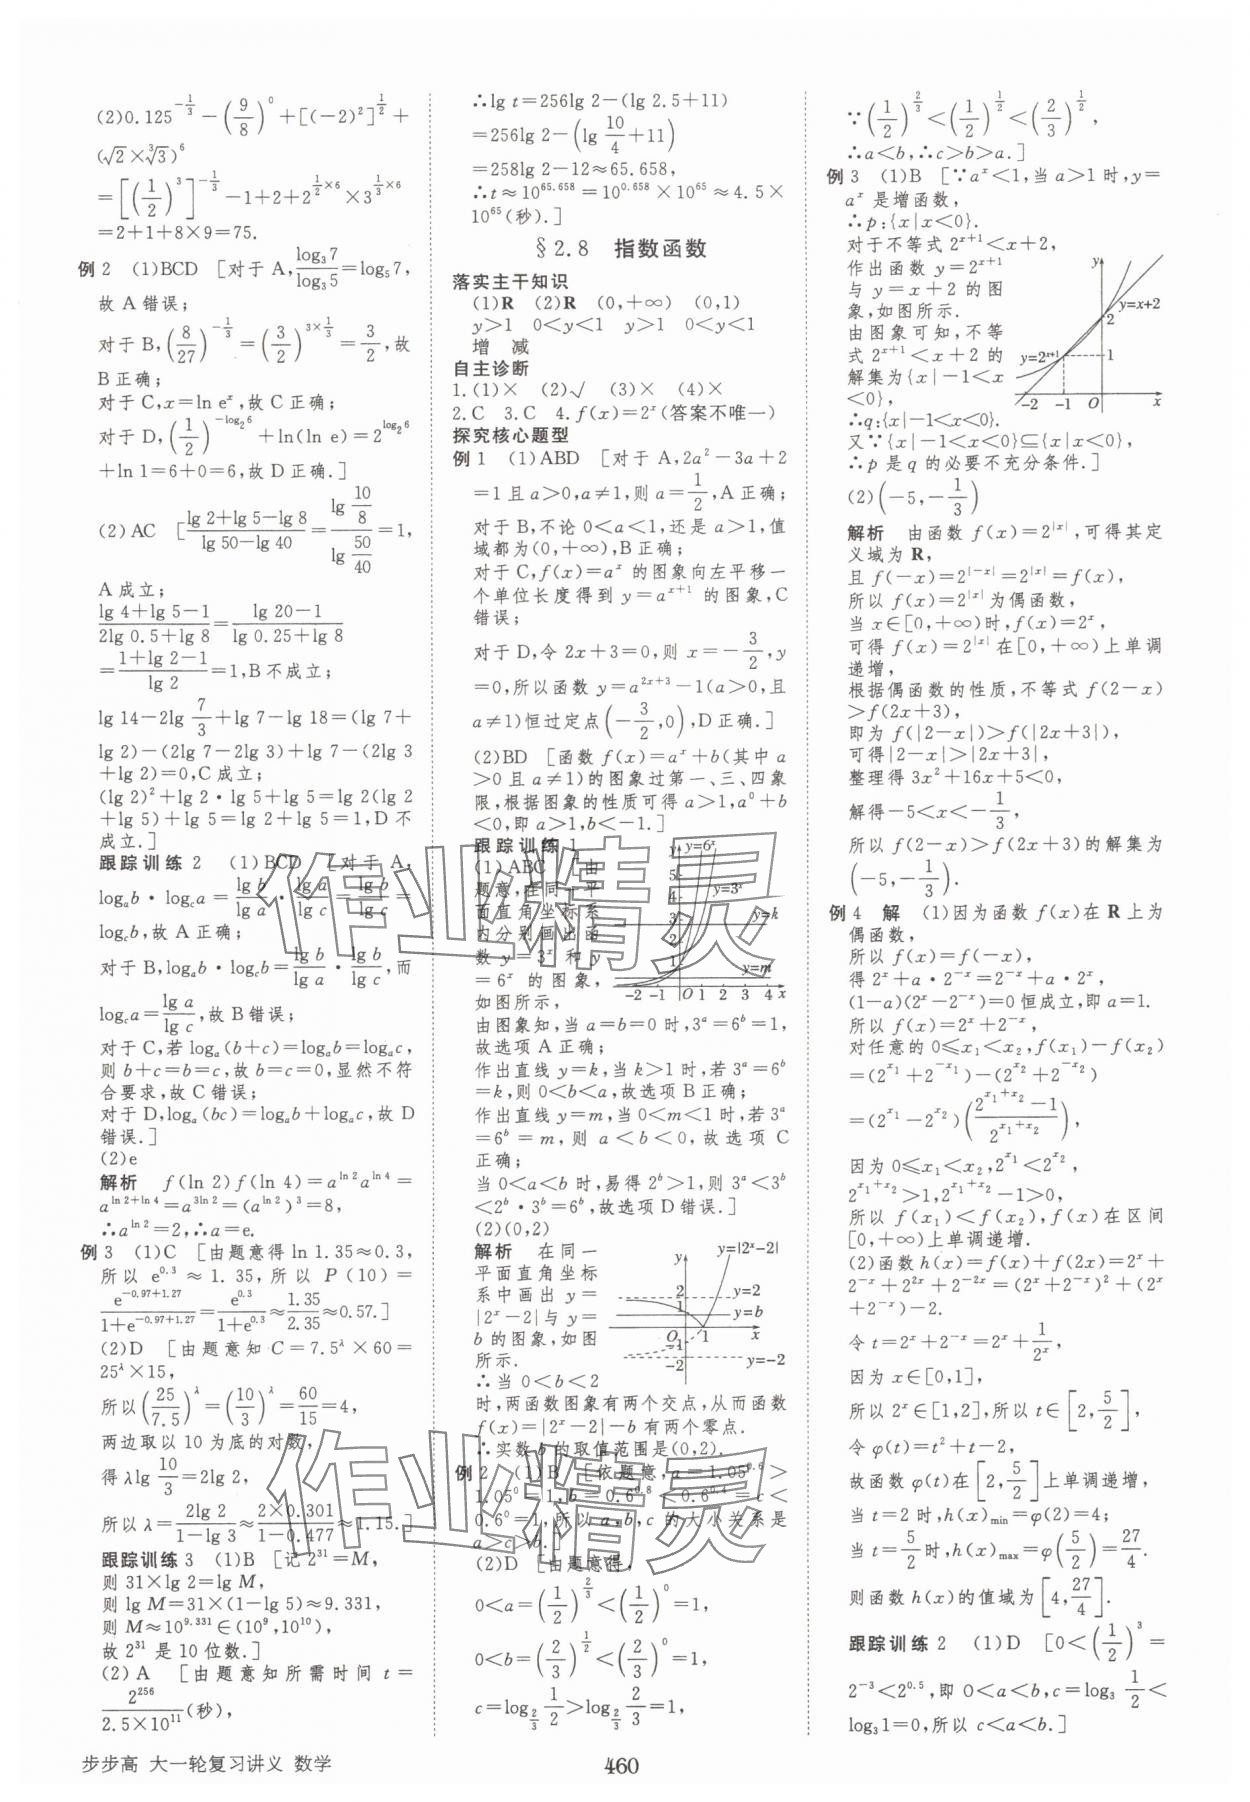 (2)0.125^{-1/3}-(9/8)^0+[(-2)^2]^{1/2}+
(√2×∛3)^6
=[(1/2)^3]^{-1/3}-1+2+2^{1/2×6}×3^{1/3×6}
=2+1+8×9=75.
例2 (1)BCD [对于A,log₃7/log₃5=log₅7,
故A错误;
对于B,(8/27)^{-1/3}=(3/2)^{3×1/3}=3/2,故
B正确;
对于C,x=ln e^x,故C正确;
对于D,(1/2)^{-log₂6}+ln(ln e)=2^{log₂6}
+ln 1=6+0=6,故D正确.]
(2)AC [(lg 2+lg 5-lg 8)/(lg 50-lg 40)=(lg 10/8)/(lg 50/40)=1,
A成立;
(lg 4+lg 5-1)/(2lg 0.5+lg 8)=(lg 20-1)/(lg 0.25+lg 8)
=(1+lg 2-1)/(lg 2)=1,B不成立;
lg 14-2lg 7/3+lg 7-lg 18=(lg 7+
lg 2)-(2lg 7-2lg 3)+lg 7-(2lg 3
+lg 2)=0,C成立;
(lg 2)²+lg 2·lg 5+lg 5=lg 2(lg 2
+lg 5)+lg 5=lg 2+lg 5=1,D不
成立.]
跟踪训练2 (1)BCD [对于A,
log_a b·log_c a=(lg b/lg a)·(lg a/lg c)=lg b/lg c=
log_c b,故A正确;
对于B,log_a b·log_c b=(lg b/lg a)·(lg b/lg c),而
log_c a=lg a/lg c,故B错误;
对于C,若log_a(b+c)=log_a b=log_a c,
则b+c=b=c,故b=c=0,显然不符
合要求,故C错误;
对于D,log_a(bc)=log_a b+log_a c,故D
错误.]
(2)e
解析 f(ln 2)f(ln 4)=a^{ln 2}a^{ln 4}=
a^{ln 2+ln 4}=a^{3ln 2}=(a^{ln 2})^3=8,
∴a^{ln 2}=2,∴a=e.
例3 (1)C [由题意得ln 1.35≈0.3,
所以e^{0.3}≈1.35,所以P(10)=
e^{-0.97+1.27}/(1+e^{-0.97+1.27})=e^{0.3}/(1+e^{0.3})≈1.35/2.35≈0.57.]
(2)D [由题意知C=7.5^λ×60=
25^λ×15,
所以(25/7.5)^λ=(10/3)^λ=60/15=4,
两边取以10为底的对数,
得λlg 10/3=2lg 2,
所以λ=2lg 2/(1-lg 3)≈(2×0.301)/(1-0.477)≈1.15.]
跟踪训练3 (1)B [记2^{31}=M,
则31×lg 2=lg M,
则lg M=31×(1-lg 5)≈9.331,
则M≈10^{9.331}∈(10^9,10^{10}),
故2^{31}是10位数.]
(2)A [由题意知所需时间t=
2^{256}/(2.5×10^{11})(秒),
∴lg t=256lg 2-(lg 2.5+11)
=256lg 2-(lg 10/4+11)
=258lg 2-12≈65.658,
∴t≈10^{65.658}=10^{0.658}×10^{65}≈4.5×
10^{65}(秒).]
§2.8 指数函数
落实主干知识
(1)R (2)R (0,+∞) (0,1)
y>1 0<y<1 y>1 0<y<1
增 减
自主诊断
1.(1)× (2)√ (3)× (4)×
2.C 3.C 4.f(x)=2^x(答案不唯一)
探究核心题型
例1 (1)ABD [对于A,2a²-3a+2
=1且a>0,a≠1,则a=1/2,A正确;
对于B,不论0<a<1,还是a>1,值
域都为(0,+∞),B正确;
对于C,f(x)=a^x的图象向左平移一
个单位长度得到y=a^{x+1}的图象,C
错误;
对于D,令2x+3=0,则x=-3/2,y
=0,所以函数y=a^{2x+3}-1(a>0,且
a≠1)恒过定点(-3/2,0),D正确.]
(2)BD [函数f(x)=a^x+b(其中a
>0且a≠1)的图象过第一、三、四象
限,根据图象的性质可得a>1,a^0+b
<0,即a>1,b<-1.]
跟踪训练1
(1)ABC [由
题意,在同一平
面直角坐标系
内分别画出函
数y=3^x和y
=6^x的图象,
如图所示,
y y=6^x
5
4 y=3^x
3
2 y=k
1
y=m
-2 -1 O 1 2 3 4 x
由图象知,当a=b=0时,3^a=6^b=1,
故选项A正确;
作出直线y=k,当k>1时,若3^a=6^b
=k,则0<b<a,故选项B正确;
作出直线y=m,当0<m<1时,若3^a
=6^b=m,则a<b<0,故选项C
正确;
当0<a<b时,易得2^b>1,则3^a<3^b
<2^b·3^b=6^b,故选项D错误.]
(2)(0,2)
解析 在同一
平面直角坐标
系中画出y=
|2^x-2|与y=
b的图象,如图
所示.
y y=|2^x-2|
2 y=2
1 y=b
O 1 x
-1
-2 y=-2
∴当0<b<2
时,两函数图象有两个交点,从而函数
f(x)=|2^x-2|-b有两个零点.
∴实数b的取值范围是(0,2).
例2 (1)B [依题意,a=1.05^{0.6}>
1.05^0=1,b=0.6^{0.8}<0.6^{0.4}=c<
0.6^0=1,所以a,b,c的大小关系是
a>c>b.]
(2)D [由题意得,
0<a=(1/2)^{2/3}<(1/2)^0=1,
0<b=(2/3)^{1/2}<(2/3)^0=1,
c=log_{2/3}1/2>log_{2/3}2/3=1,
∵(1/2)^{2/3}<(1/2)^{1/2}<(2/3)^{1/2},
∴a<b,∴c>b>a.]
例3 (1)B [∵a^x<1,当a>1时,y=
a^x是增函数,
∴p:{x|x<0}.
对于不等式2^{x+1}<x+2,
作出函数y=2^{x+1}
与y=x+2的图
象,如图所示.
由图象可知,不等
式2^{x+1}<x+2的
解集为{x|-1<x
<0},
y
y=x+2
2
y=2^{x+1} 1
-2 -1 O x
∴q:{x|-1<x<0}.
又∵{x|-1<x<0}⊆{x|x<0},
∴p是q的必要不充分条件.]
(2)(-5,-1/3)
解析 由函数f(x)=2^{|x|},可得其定
义域为R,
且f(-x)=2^{|-x|}=2^{|x|}=f(x),
所以f(x)=2^{|x|}为偶函数,
当x∈[0,+∞)时,f(x)=2^x,
可得f(x)=2^{|x|}在[0,+∞)上单调
递增,
根据偶函数的性质,不等式f(2-x)
>f(2x+3),
即为f(|2-x|)>f(|2x+3|),
可得|2-x|>|2x+3|,
整理得3x²+16x+5<0,
解得-5<x<-1/3,
所以f(2-x)>f(2x+3)的解集为
(-5,-1/3).
例4 解 (1)因为函数f(x)在R上为
偶函数,
所以f(x)=f(-x),
得2^x+a·2^{-x}=2^{-x}+a·2^x,
(1-a)(2^x-2^{-x})=0恒成立,即a=1.
所以f(x)=2^x+2^{-x},
对任意的0≤x₁<x₂,f(x₁)-f(x₂)
=(2^{x₁}+2^{-x₁})-(2^{x₂}+2^{-x₂})
=(2^{x₁}-2^{x₂})((2^{x₁+x₂}-1)/2^{x₁+x₂})
因为0≤x₁<x₂,2^{x₁}<2^{x₂},
2^{x₁+x₂}>1,2^{x₁+x₂}-1>0,
所以f(x₁)<f(x₂),f(x)在区间
[0,+∞)上单调递增.
(2)函数h(x)=f(x)+f(2x)=2^x+
2^{-x}+2^{2x}+2^{-2x}=(2^x+2^{-x})²+(2^x
+2^{-x})-2.
令t=2^x+2^{-x}=2^x+1/2^x,
因为x∈[0,1],
所以2^x∈[1,2],所以t∈[2,5/2],
令φ(t)=t²+t-2,
故函数φ(t)在[2,5/2]上单调递增,
当t=2时,h(x)_{min}=φ(2)=4;
当t=5/2时,h(x)_{max}=φ(5/2)=27/4.
则函数h(x)的值域为[4,27/4].
跟踪训练2 (1)D [0<(1/2)^3=
2^{-3}<2^{0.5},即0<a<b,c=log₃1/2<
log₃1=0,所以c<a<b.]
步步高 大一轮复习讲义 数学
460
作业精灵
作业精灵